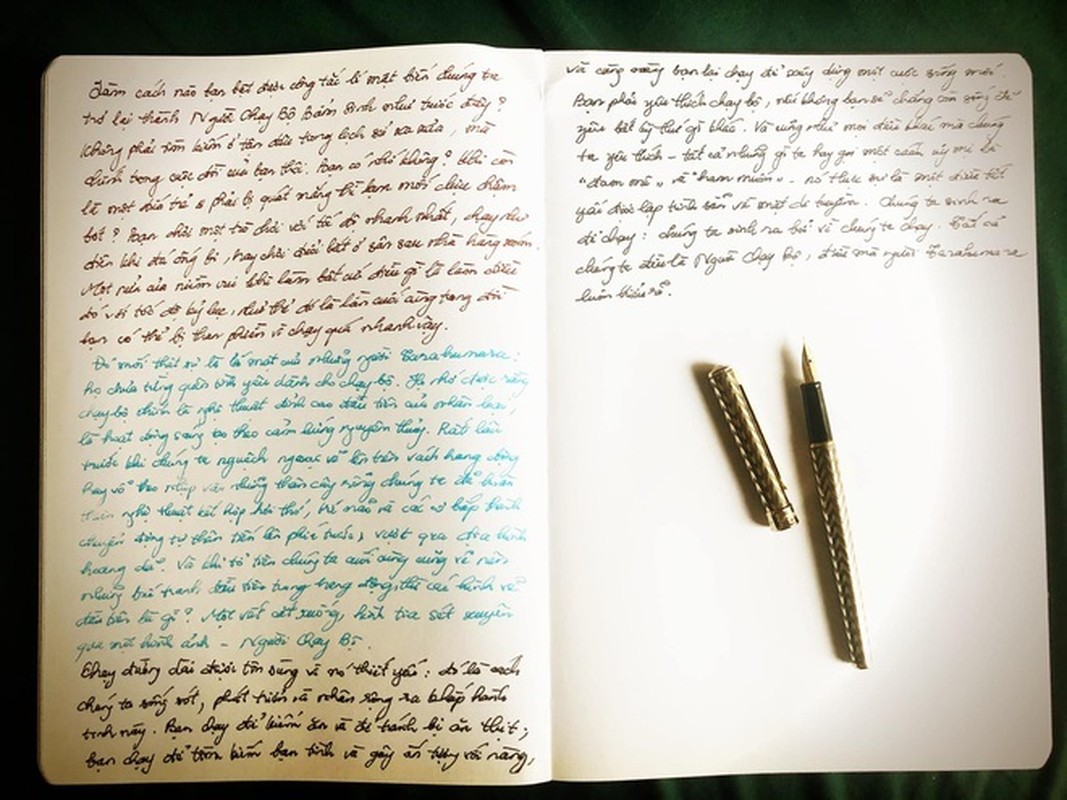 Làm cách nào bạn bật được công tắc bí mật biến chúng ta
trở lại thành Người Chạy Bộ Bẩm Sinh như trước đây?
Không phải tìm kiếm ở tận đâu trong lịch sử xa xưa, mà
chính trong cuộc đời của bạn thôi. Bạn có nhớ không? Khi còn
là một đứa trẻ phải bị quát nặng thì bạn mới chịu chậm
bớt? Bạn chơi một trò chơi với tốc độ nhanh nhất, chạy như
điên khi đá ống bơ, hay chơi đuổi bắt ở sân sau nhà hàng xóm.
Một nửa của niềm vui khi làm bất cứ điều gì là làm điều
đó với tốc độ kỷ lục, như thể đó là lần cuối cùng trong đời
bạn có thể bị than phiền vì chạy quá nhanh vậy.
Đó mới thật sự là bí mật của những người Tarahumara:
họ chưa từng quên tình yêu dành cho chạy bộ. Họ nhớ được rằng
chạy bộ chính là nghệ thuật đỉnh cao đầu tiên của nhân loại,
là hoạt động sáng tạo theo cảm hứng nguyên thủy. Rất lâu
trước khi chúng ta nguệch ngoạc vẽ lên trên vách hang động
hay vỗ theo nhịp vào những thân cây rỗng chúng ta đã hoàn
thiện nghệ thuật kết hợp hơi thở, trí não và các cơ bắp thành
chuyển động tự thân tiến lên phía trước, vượt qua địa hình
hoang dã. Và khi tổ tiên chúng ta cuối cùng cũng vẽ nên
những bức tranh đầu tiên trong hang động, thì các hình vẽ
đầu tiên là gì? Một vết cắt xuống, hình tia sét xuyên
qua một hình ảnh – Người Chạy Bộ.
Chạy đường dài được tôn sùng vì nó thiết yếu: đó là cách
chúng ta sống sót, phát triển và nhân rộng ra khắp hành
tinh này. Bạn chạy để kiếm ăn và để tránh bị ăn thịt;
bạn chạy để tìm kiếm bạn tình và gây ấn tượng với nàng,
và cùng nàng bạn lại chạy để xây dựng một cuộc sống mới.
Bạn phải yêu thích chạy bộ, nếu không bạn sẽ chẳng còn sống để
yêu bất kỳ thứ gì khác. Và cũng như mọi điều khác mà chúng
ta yêu thích – tất cả những gì ta hay gọi một cách ủy mị là
"đam mê" và "ham muốn" – nó thực sự là một điều tất
yếu được lập trình sẵn về mặt di truyền. Chúng ta sinh ra
để chạy; chúng ta sinh ra bởi vì chúng ta chạy. Tất cả
chúng ta đều là Người Chạy Bộ, điều mà người Tarahumara
luôn thấu rõ.